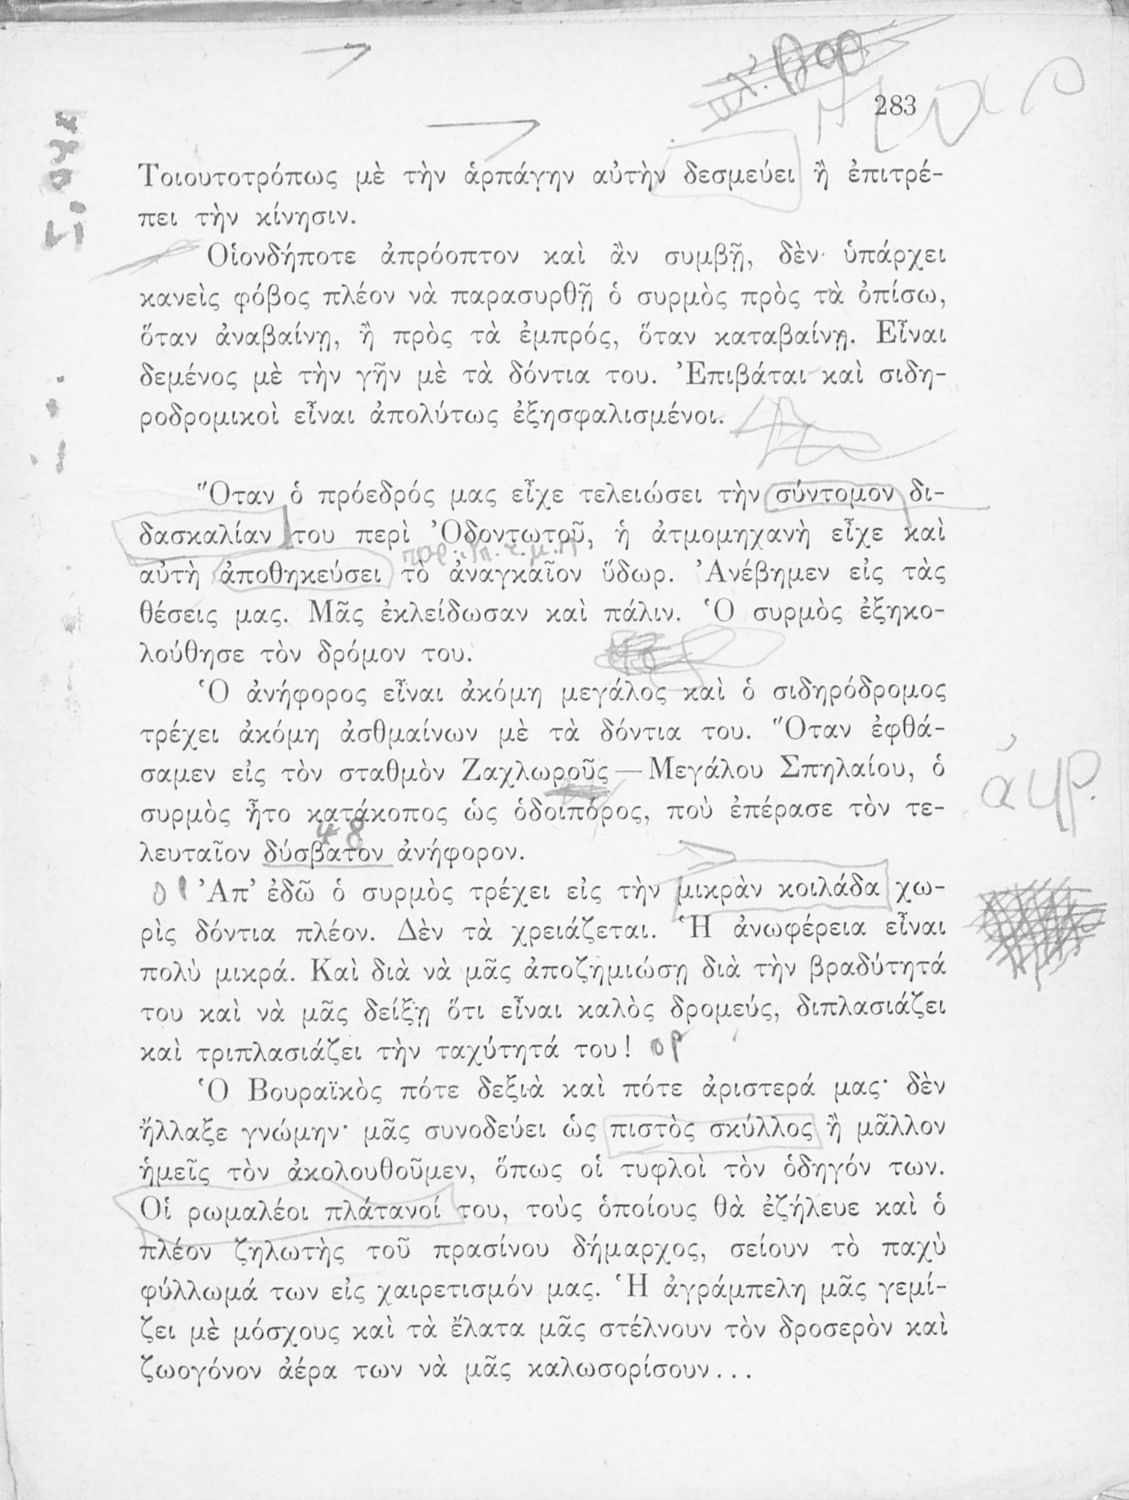 283
Τοιουτοτρόπως μὲ τὴν ἁρπάγην αὐτὴν δεσμεύει ἢ ἐπιτρέ-
πει τὴν κίνησιν.
Οἱονδήποτε ἀπρόοπτον καὶ ἂν συμβῇ, δὲν ὑπάρχει
κανεὶς φόβος πλέον νὰ παρασυρθῇ ὁ συρμὸς πρὸς τὰ ὀπίσω,
ὅταν ἀναβαίνῃ, ἢ πρὸς τὰ ἐμπρός, ὅταν καταβαίνῃ. Εἶναι
δεμένος μὲ τὴν γῆν μὲ τὰ δόντια του. Ἐπιβάται καὶ σιδη-
ροδρομικοὶ εἶναι ἀπολύτως ἐξησφαλισμένοι.
Ὅταν ὁ πρόεδρός μας εἶχε τελειώσει τὴν σύντομον δι-
δασκαλίαν του περὶ Ὀδοντωτοῦ, ἡ ἀτμομηχανὴ εἶχε καὶ
αὐτὴ ἀποθηκεύσει τὸ ἀναγκαῖον ὕδωρ. Ἀνέβημεν εἰς τὰς
θέσεις μας. Μᾶς ἐκλείδωσαν καὶ πάλιν. Ὁ συρμὸς ἐξηκο-
λούθησε τὸν δρόμον του.
Ὁ ἀνήφορος εἶναι ἀκόμη μεγάλος καὶ ὁ σιδηρόδρομος
τρέχει ἀκόμη ἀσθμαίνων μὲ τὰ δόντια του. Ὅταν ἐφθά-
σαμεν εἰς τὸν σταθμὸν Ζαχλωροῦς — Μεγάλου Σπηλαίου, ὁ
συρμὸς ἦτο κατάκοπος ὡς ὁδοιπόρος, ποὺ ἐπέρασε τὸν τε-
48
λευταῖον δύσβατον ἀνήφορον.
Ἀπ' ἐδῶ ὁ συρμὸς τρέχει εἰς τὴν μικρὰν κοιλάδα χω-
ρὶς δόντια πλέον. Δὲν τὰ χρειάζεται. Ἡ ἀνωφέρεια εἶναι
πολὺ μικρά. Καὶ διὰ νὰ μᾶς ἀποζημιώσῃ διὰ τὴν βραδύτητά
του καὶ νὰ μᾶς δείξῃ ὅτι εἶναι καλὸς δρομεύς, διπλασιάζει
καὶ τριπλασιάζει τὴν ταχύτητά του! ορ
Ὁ Βουραϊκὸς πότε δεξιὰ καὶ πότε ἀριστερά μας· δὲν
ἤλλαξε γνώμην· μᾶς συνοδεύει ὡς πιστὸς σκύλλος ἢ μᾶλλον
ἡμεῖς τὸν ἀκολουθοῦμεν, ὅπως οἱ τυφλοὶ τὸν ὁδηγόν των.
Οἱ ρωμαλέοι πλάτανοί του, τοὺς ὁποίους θὰ ἐζήλευε καὶ ὁ
πλέον ζηλωτὴς τοῦ πρασίνου δήμαρχος, σείουν τὸ παχὺ
φύλλωμά των εἰς χαιρετισμόν μας. Ἡ ἀγράμπελη μᾶς γεμί-
ζει μὲ μόσχους καὶ τὰ ἔλατα μᾶς στέλνουν τὸν δροσερὸν καὶ
ζωογόνον ἀέρα των νὰ μᾶς καλωσορίσουν...